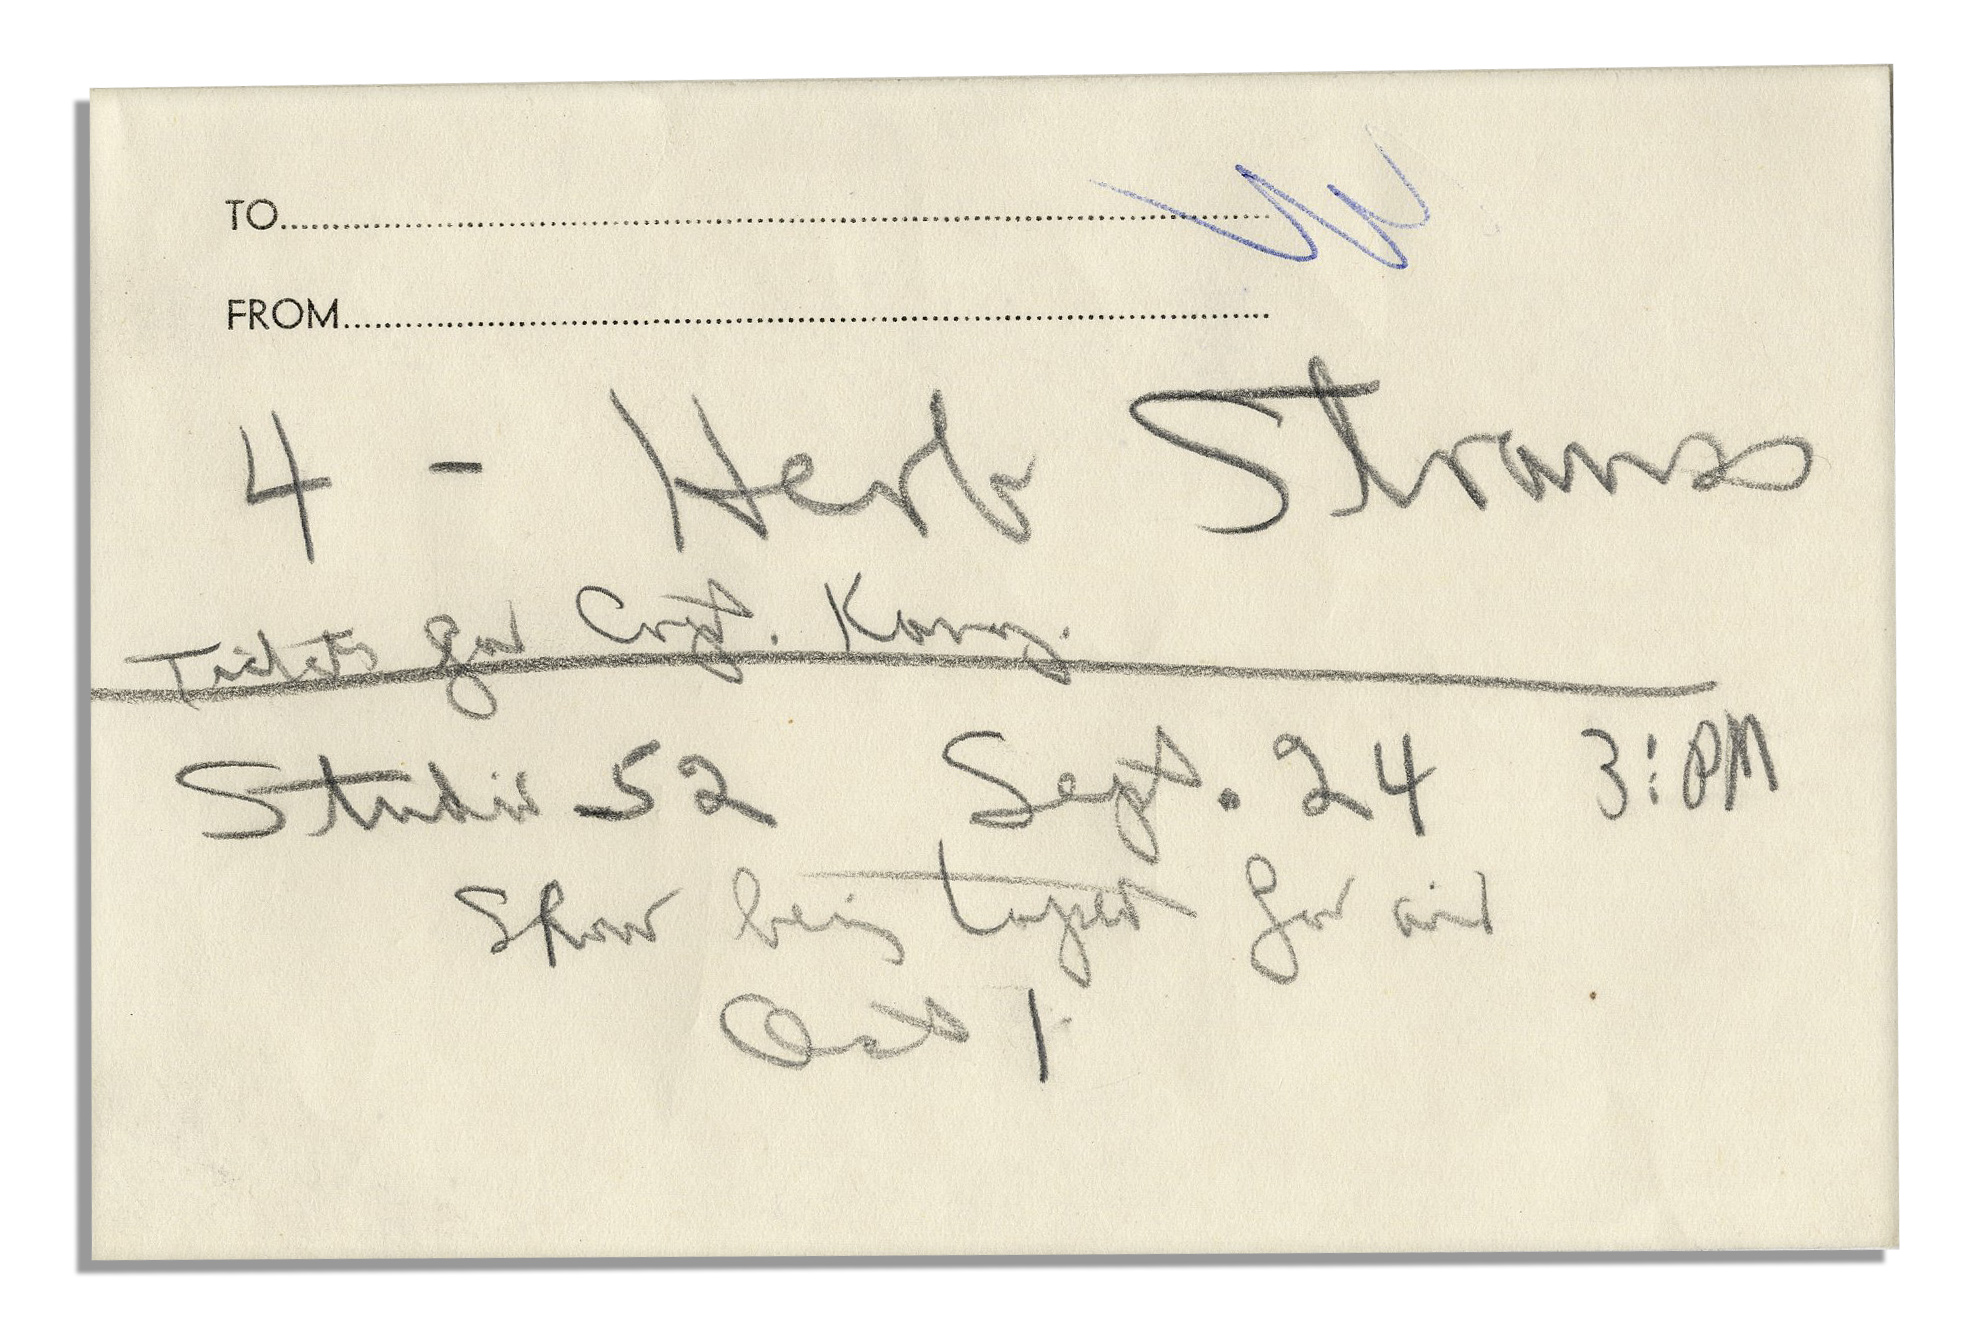 TO
FROM
4 - Herb Strauss
Tickets for Capt. Kang.
Studio 52 Sept. 24 3: PM
Show being taped for air
Oct 1